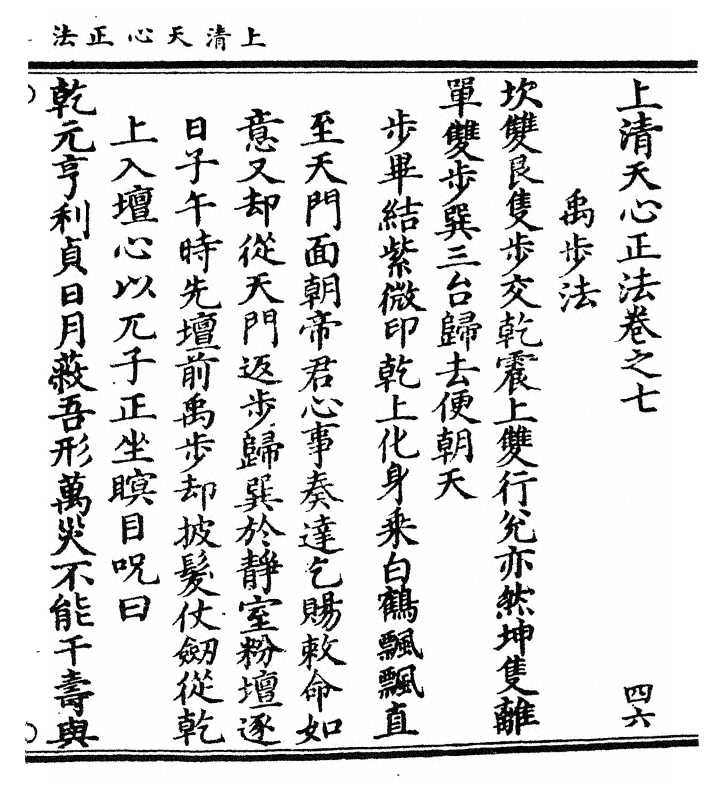 上清天心正法
上清天心正法卷之七
四六
禹步法
坎雙艮隻步交乾震上雙行兊亦然坤隻離
單雙步巽三台歸去便朝天
步畢結紫微印乾上化身乘白鶴飄飄直
至天門面朝帝君心事奏達乞賜敕命如
意又却從天門返步歸巽於靜室粉壇逐
日子午時先壇前禹步却披髮仗劒從乾
上入壇心以兀子正坐瞑目呪曰
乾元亨利貞日月蔽吾形萬災不能干壽與